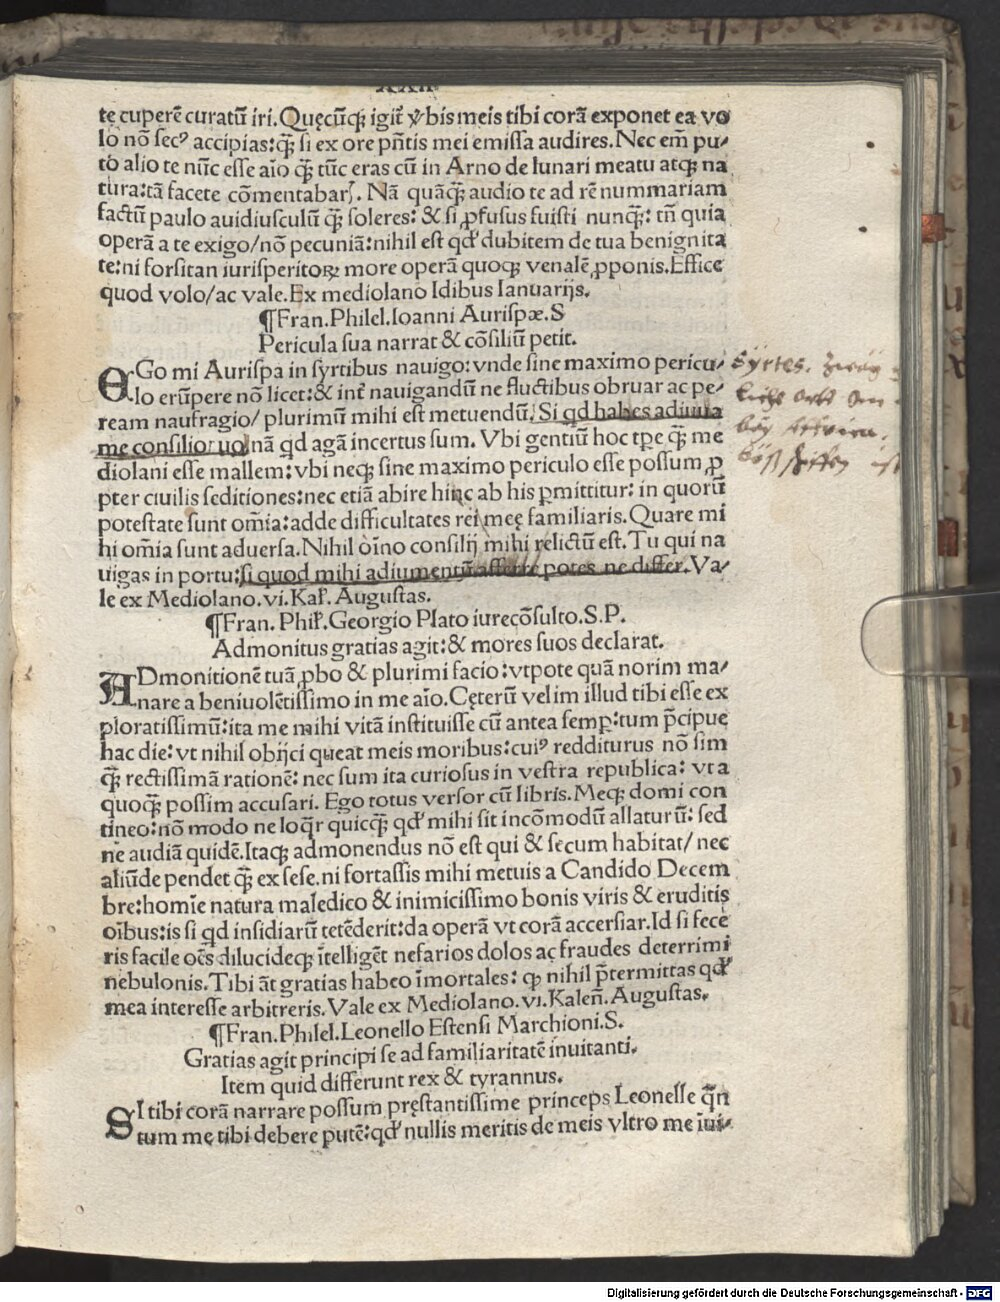 XXII
tę cuperē curatū iri. Quęcūq; igit᷑ v̄bis meis tibi corā exponet ea vo
lo nō secꝰ accipias: q̄ꝫ si ex ore pn̄tis mei emissa audires. Nec em̄ pu⸗
to alio te nūc esse aīo q̄ꝫ tūc eras cū in Arno de lunari meatu atq; na
tura: tā facete cōmentabarꝭ. Nā quāq̄ꝫ audio te ad rē nummariam
factū paulo auidiusculū q̄ꝫ soleres: & si ꝓfusus fuisti nunq̄ꝫ: tn̄ quia
operā a te exigo/ nō pecuniā: nihil est qd' dubitem de tua benignita
te: ni forsitan iurisperitoꝝ more operā quoq; venalē ꝓponis. Effice
quod volo/ ac vale. Ex mediolano Idibus Ianuarijs.
¶Fran. Philel. Ioanni Aurispæ. S
Pericula sua narrat & cōsiliū petit.
EGo mi Aurispa in syrtibus nauigo: vnde sine maximo pericu⸗
lo erūpere nō licet: & int᷑ nauigandū ne fluctibus obruar ac pe⸗
ream naufragio/ plurimū mihi est metuendū. Si qd habes adiuua
me consilio: uo nā qd agā incertus sum. Vbi gentiū hoc tp̄e q̄ꝫ me
diolani esse mallem: vbi neq; sine maximo periculo esse possum ꝓ
pter ciuilis seditiones: nec etiā abire hinc ab his ꝑmittitur: in quorū
potestate sunt om̄ia: adde difficultates rei meę familiaris. Quare mi
hi om̄ia sunt aduersa. Nihil oīno consilij mihi relictū est. Tu qui na
uigas in portu: si quod mihi adiumentū afferre potes ne differ. Va⸗
le ex Mediolano. vi. Kal'. Augustas.
¶Fran. Phil'. Georgio Plato iurecōsulto. S. P.
Admonitus gratias agit: & mores suos declarat.
ADmonitionē tuā ꝓbo & plurimi facio: vtpote quā norim ma⸗
nare a beniuolētissimo in me aīo. Cęterū velim illud tibi esse ex
ploratissimū: ita me mihi vitā instituisse cū antea semp: tum p̄cipue
hac die: vt nihil obijci queat meis moribus: cuiꝰ redditurus nō sim
q̄ꝫ rectissimā rationē: nec sum ita curiosus in vestra republica: vt a
quoq̄ꝫ possim accusari. Ego totus versor cū libris. Meq; domi con
tineo: nō modo ne loq̄r quicq̄ꝫ qd' mihi sit incōmodū allaturū: sed
ne audiā quidē. Itaq; admonendus nō est qui & secum habitat/ nec
aliūde pendet q̄ꝫ ex sese. ni fortassis mihi metuis a Candido Decem
bre: homīe natura maledico & inimicissimo bonis viris & eruditis
oībus: is si qd insidiarū tetēderit: da operā vt corā accersiar. Id si fece
ris facile oēs dilucideq; ītelligēt nefarios dolos ac fraudes deterrimi
nebulonis. Tibi āt gratias habeo īmortales: ꝙ nihil p̄termittas qd'
mea interesse arbitreris. Vale ex Mediolano. vi. Kalen̄. Augustas.
¶Fran. Philel. Leonello Estensi Marchioni. S.
Gratias agit principi se ad familiaritatē inuitanti.
Item quid differunt rex & tyrannus.
SI tibi corā narrare possum pręstantissime princeps Leonelle q̄n
tum me tibi debere putē: qd' nullis meritis de meis vltro me iui⸗
Syrtes.
Digitalisierung gefördert durch die Deutsche Forschungsgemeinschaft - DFG